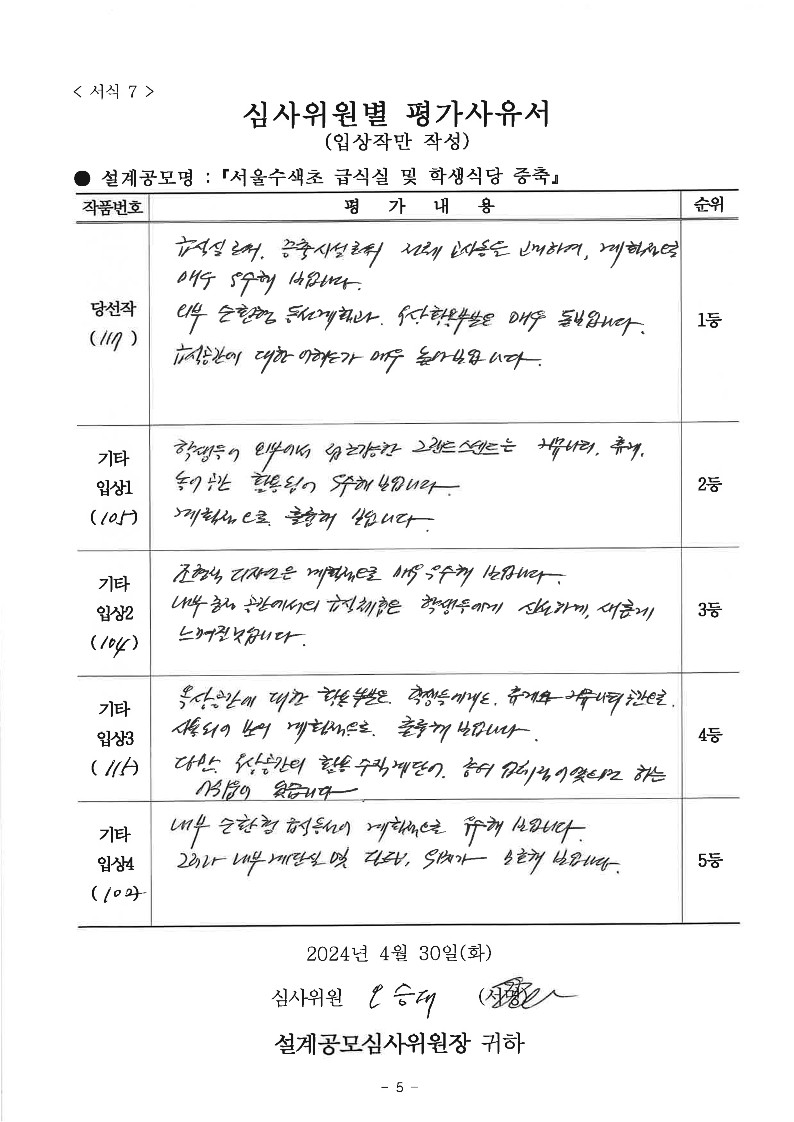 < 서식 7 >
심사위원별 평가사유서
(입상작만 작성)
● 설계공모명 : 『서울수색초 급식실 및 학생식당 증축』
작품번호 평 가 내 용 순위
당선작
(117)
급식실로써, 증축시설로써 전체 교사동을 고려하여, 계획적으로
매우 우수해 보입니다.
외부 순환형 동선계획과, 옥상활용부분은 매우 돋보입니다.
급식공간에 대한 이해도가 매우 높아보입니다.
1등
기타
입상1
(105)
학생들이 외부에서 접근가능한 그랜드스탠드는 커뮤니티, 휴게,
놀이공간 활용됨이 우수해 보입니다.
계획적으로 훌륭해 보입니다.
2등
기타
입상2
(104)
조형적 디자인은 계획적으로 매우 우수해 보입니다.
내부 공간에서의 급식체험은 학생들에게 신선하게, 새롭게
느껴질것입니다.
3등
기타
입상3
(115)
옥상공간에 대한 활용부분은, 학생들에게도, 휴게와 커뮤니티공간으로,
사용되어 보여 계획적으로, 훌륭해 보입니다.
다만, 옥상공간의 활용 수직계단이, 있었다면 하는
아쉬움이 있습니다
4등
기타
입상4
(102)
내부 순환형 급식동선이 계획적으로 우수해 보입니다.
그러나 내부계단실 및 위치가 보입니다.
5등
2024년 4월 30일(화)
심사위원 오승대 (서명)
설계공모심사위원장 귀하
- 5 -